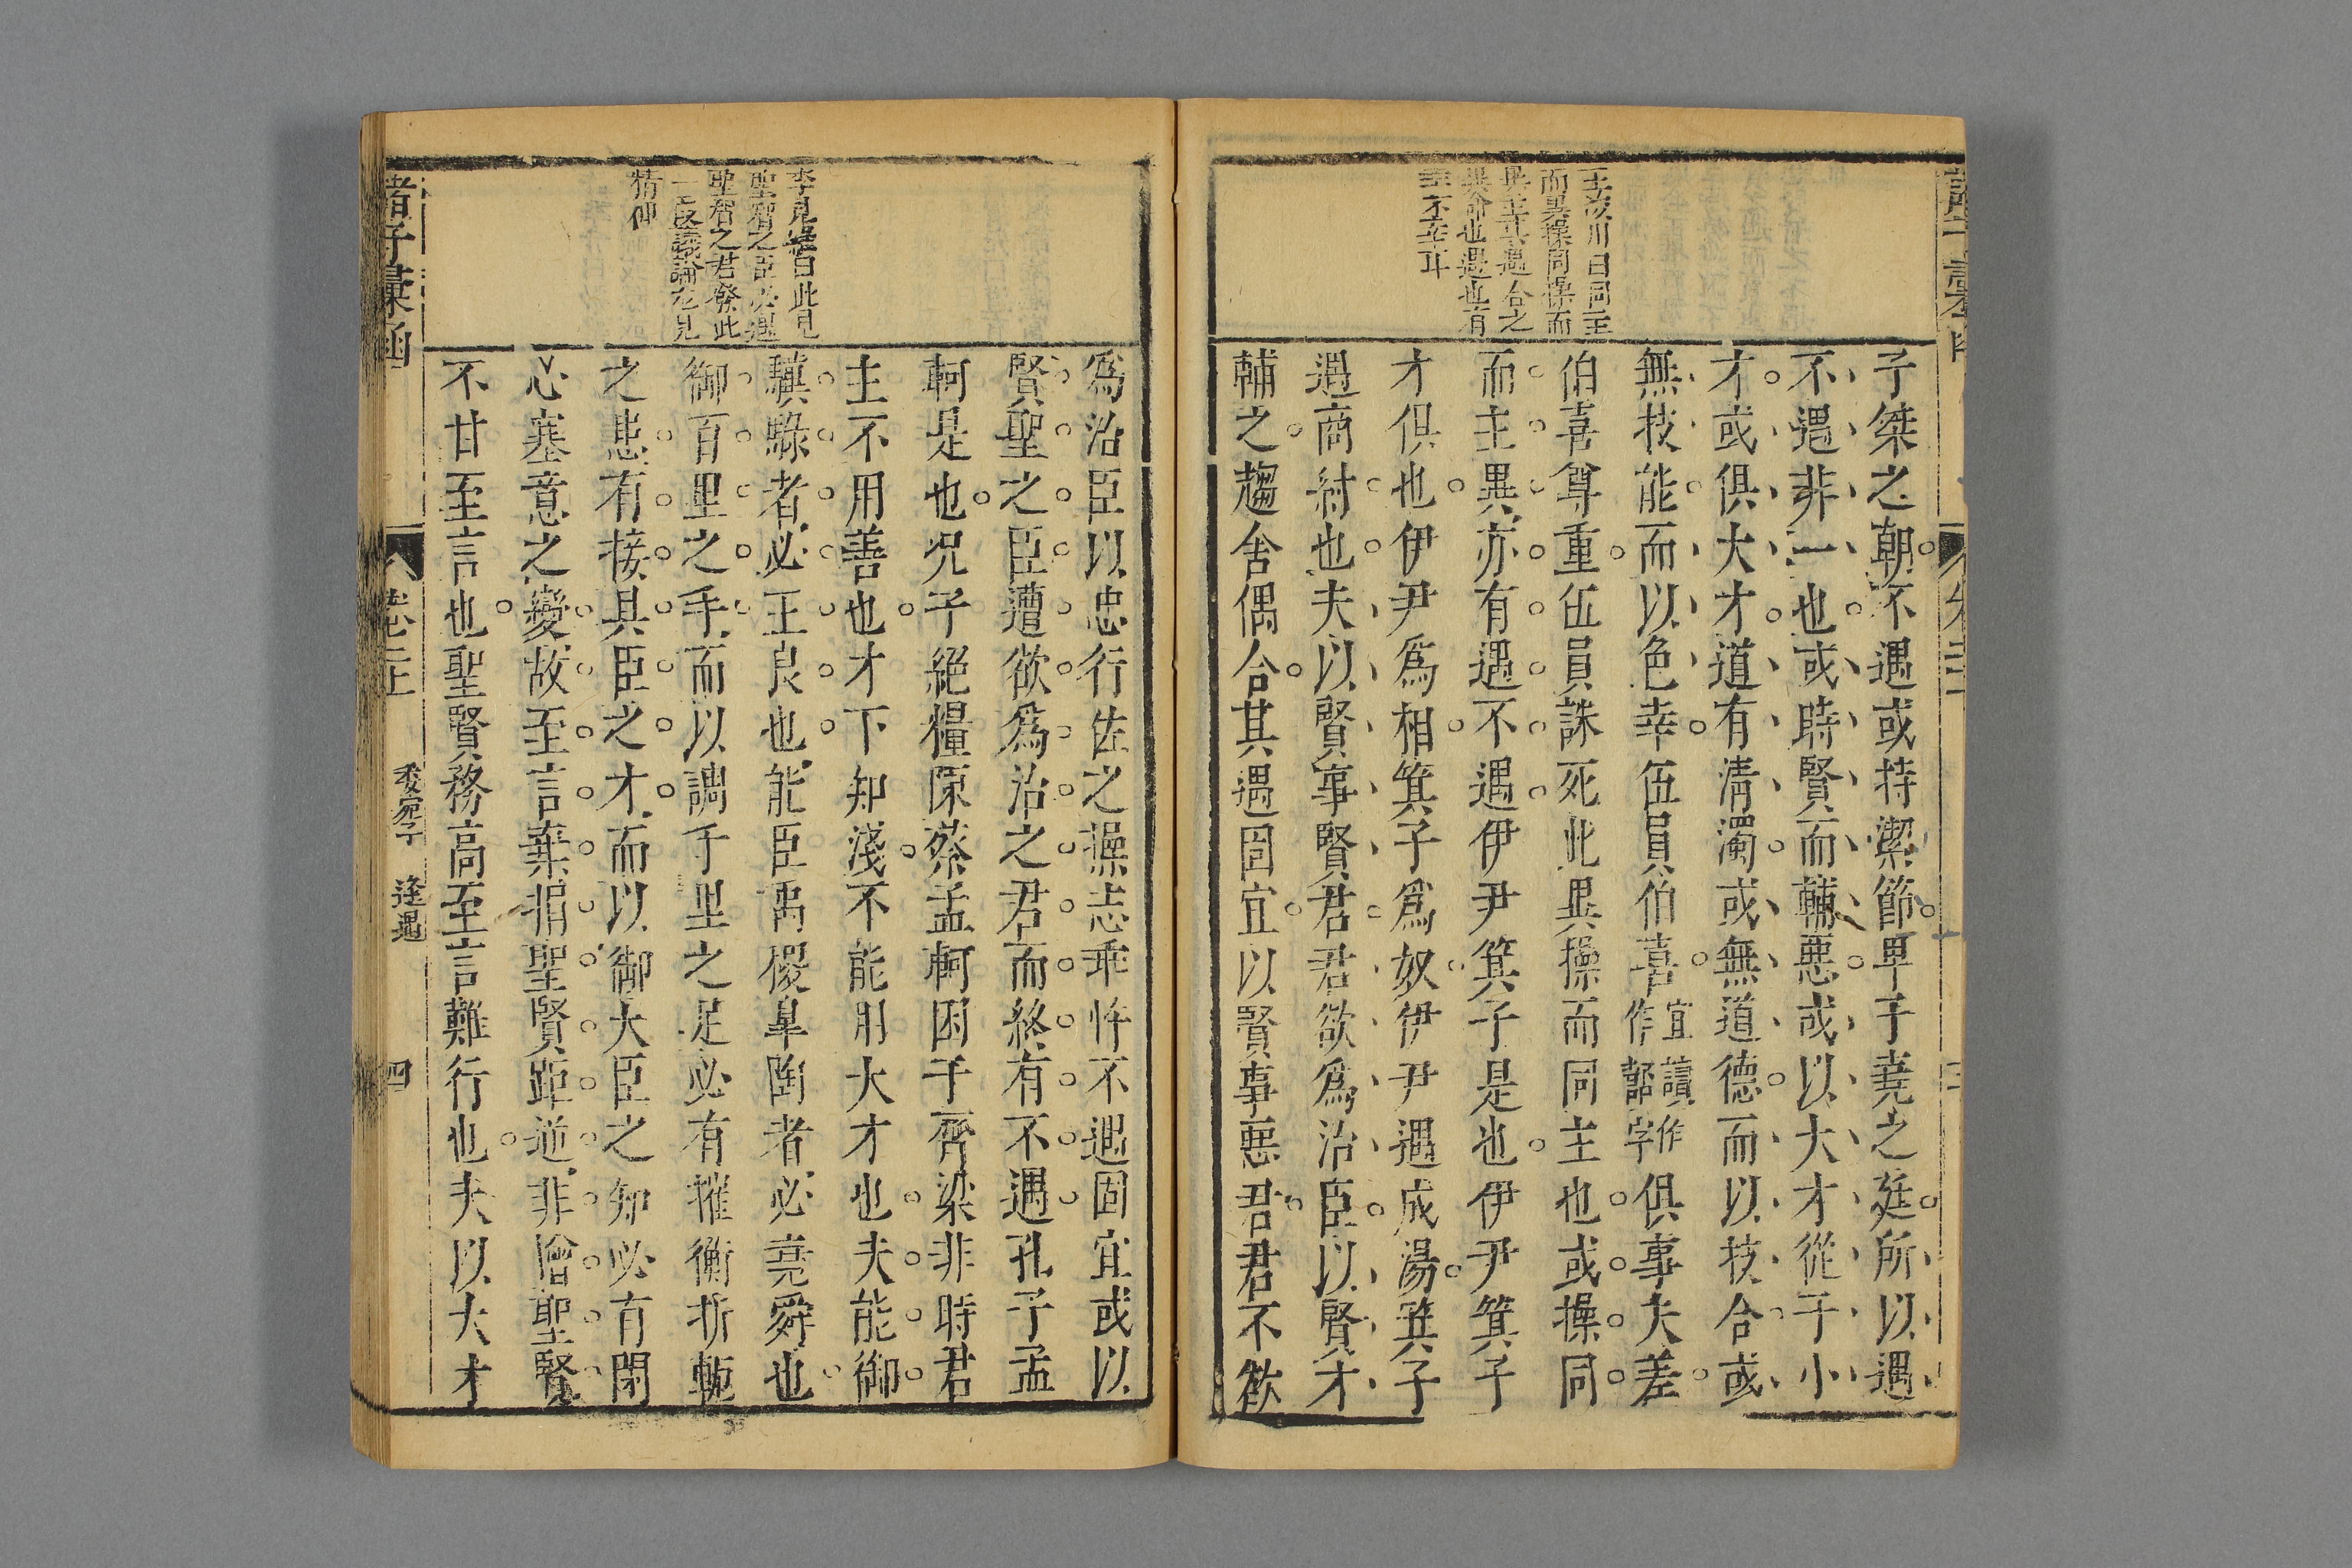 子桀之朝不遇或持潔節卑于堯之廷所以遇
不遇非一也或時賢而輔惡或以大才從于小
才或俱大才道有清濁或無道德而以技合或
無技能而以色幸伍員伯喜宜讀作作嚭字俱事夫差
伯喜尊重伍員誅死此異操而同主也或操同
而主異亦有遇不遇伊尹箕子是也伊尹箕子
才俱也伊尹爲相箕子爲奴伊尹遇成湯箕子
遇商紂也夫以賢事賢君君欲爲治臣以賢才
輔之趨舍偶合其遇固宜以賢事惡君君不欲
曰同主
而異操同操而
異主其遇合之
異命也遇也有
幸不幸耳
爲治臣以忠行佐之操志乖忤不遇固宜或以
賢聖之臣遭欲爲治之君而終有不遇孔子孟
軻是也况子絕糧陳蔡孟軻困于齊梁非時君
主不用善也才下知淺不能用大才也夫能御
驥騄者必王良也能臣禹稷臯陶者必堯舜也
御百里之手而以調千里之足必有摧衡折軛
之患有接具臣之才而以御大臣之知必有閉
心塞意之變故至言棄捐聖賢距逆非憎聖賢
不甘至言也聖賢務高至言難行也夫以大才
曰此見
聖賢之臣必遇
聖賢之君發此
一段議論尤見
精仰
諸子彙函
卷二十
委宛子 逢遇
四